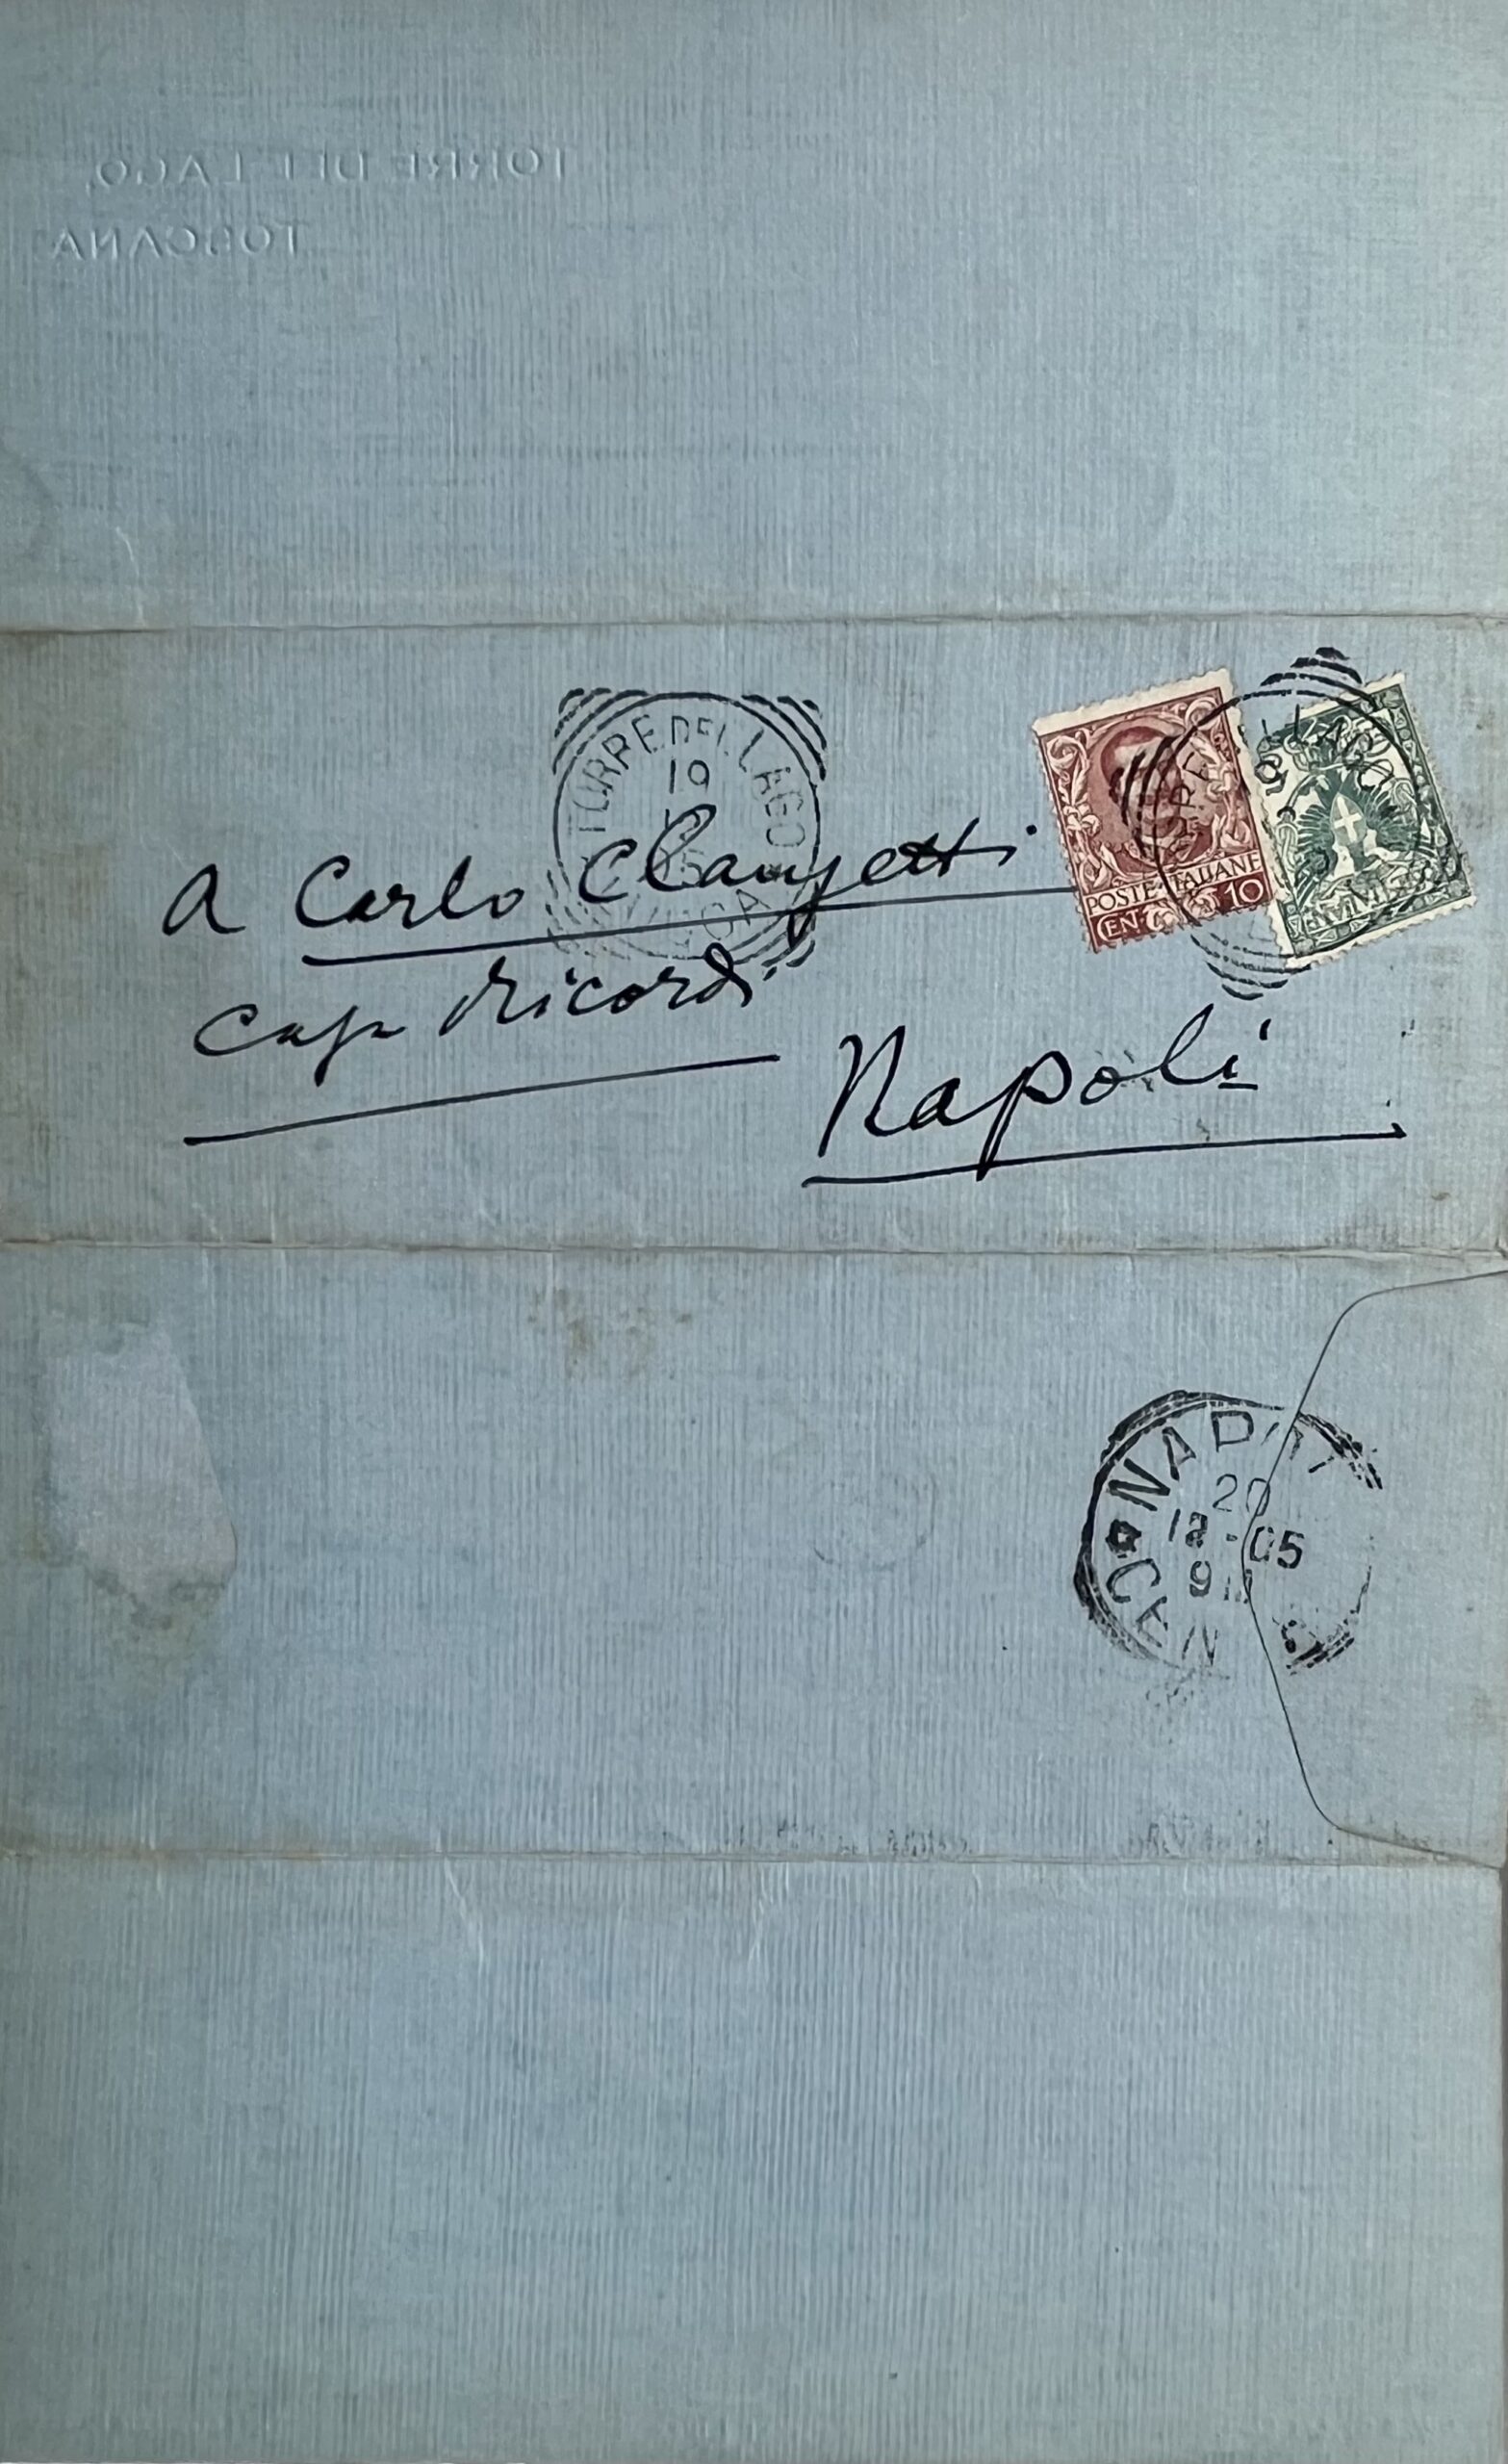 TORRE DEL LAGO,
TOSCANA
TORRE DEL LAGO
19
A Carlo Clausetti
POSTE ITALIANE
CENT. 10
Casa Ricordi
Napoli
NAPOLI
20
12-05
9